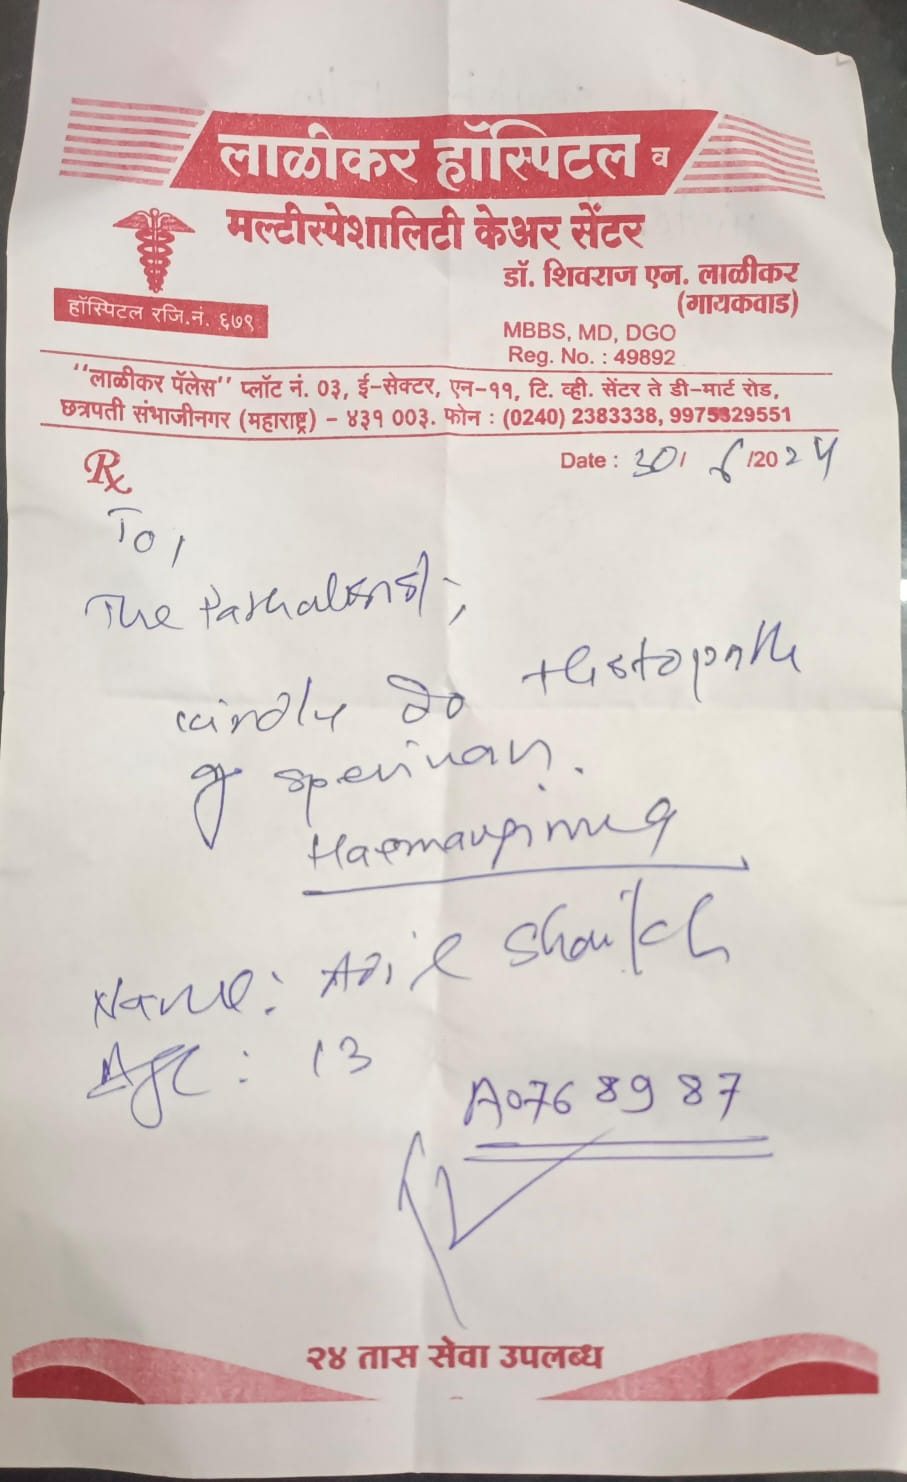 लाळीकर हॉस्पिटल व
मल्टीस्पेशालिटी केअर सेंटर
डॉ. शिवराज एन. लाळीकर
(गायकवाड)
हॉस्पिटल रजि.नं. ६७९
MBBS, MD, DGO
Reg. No. : 49892
"लाळीकर पॅलेस" प्लॉट नं. 03, ई-सेक्टर, एन-११, टि. व्ही. सेंटर ते डी-मार्ट रोड,
छत्रपती संभाजीनगर (महाराष्ट्र) - ४३१ 003. फोन : (0240) 2383338, 9975329551
Rx
Date : 30/ 6/2024
To,
The Pathologist,
kindly do Histopath
of specimen.
Haemangioma
Name: Shaikh
Age: 13
A0768987
२४ तास सेवा उपलब्ध